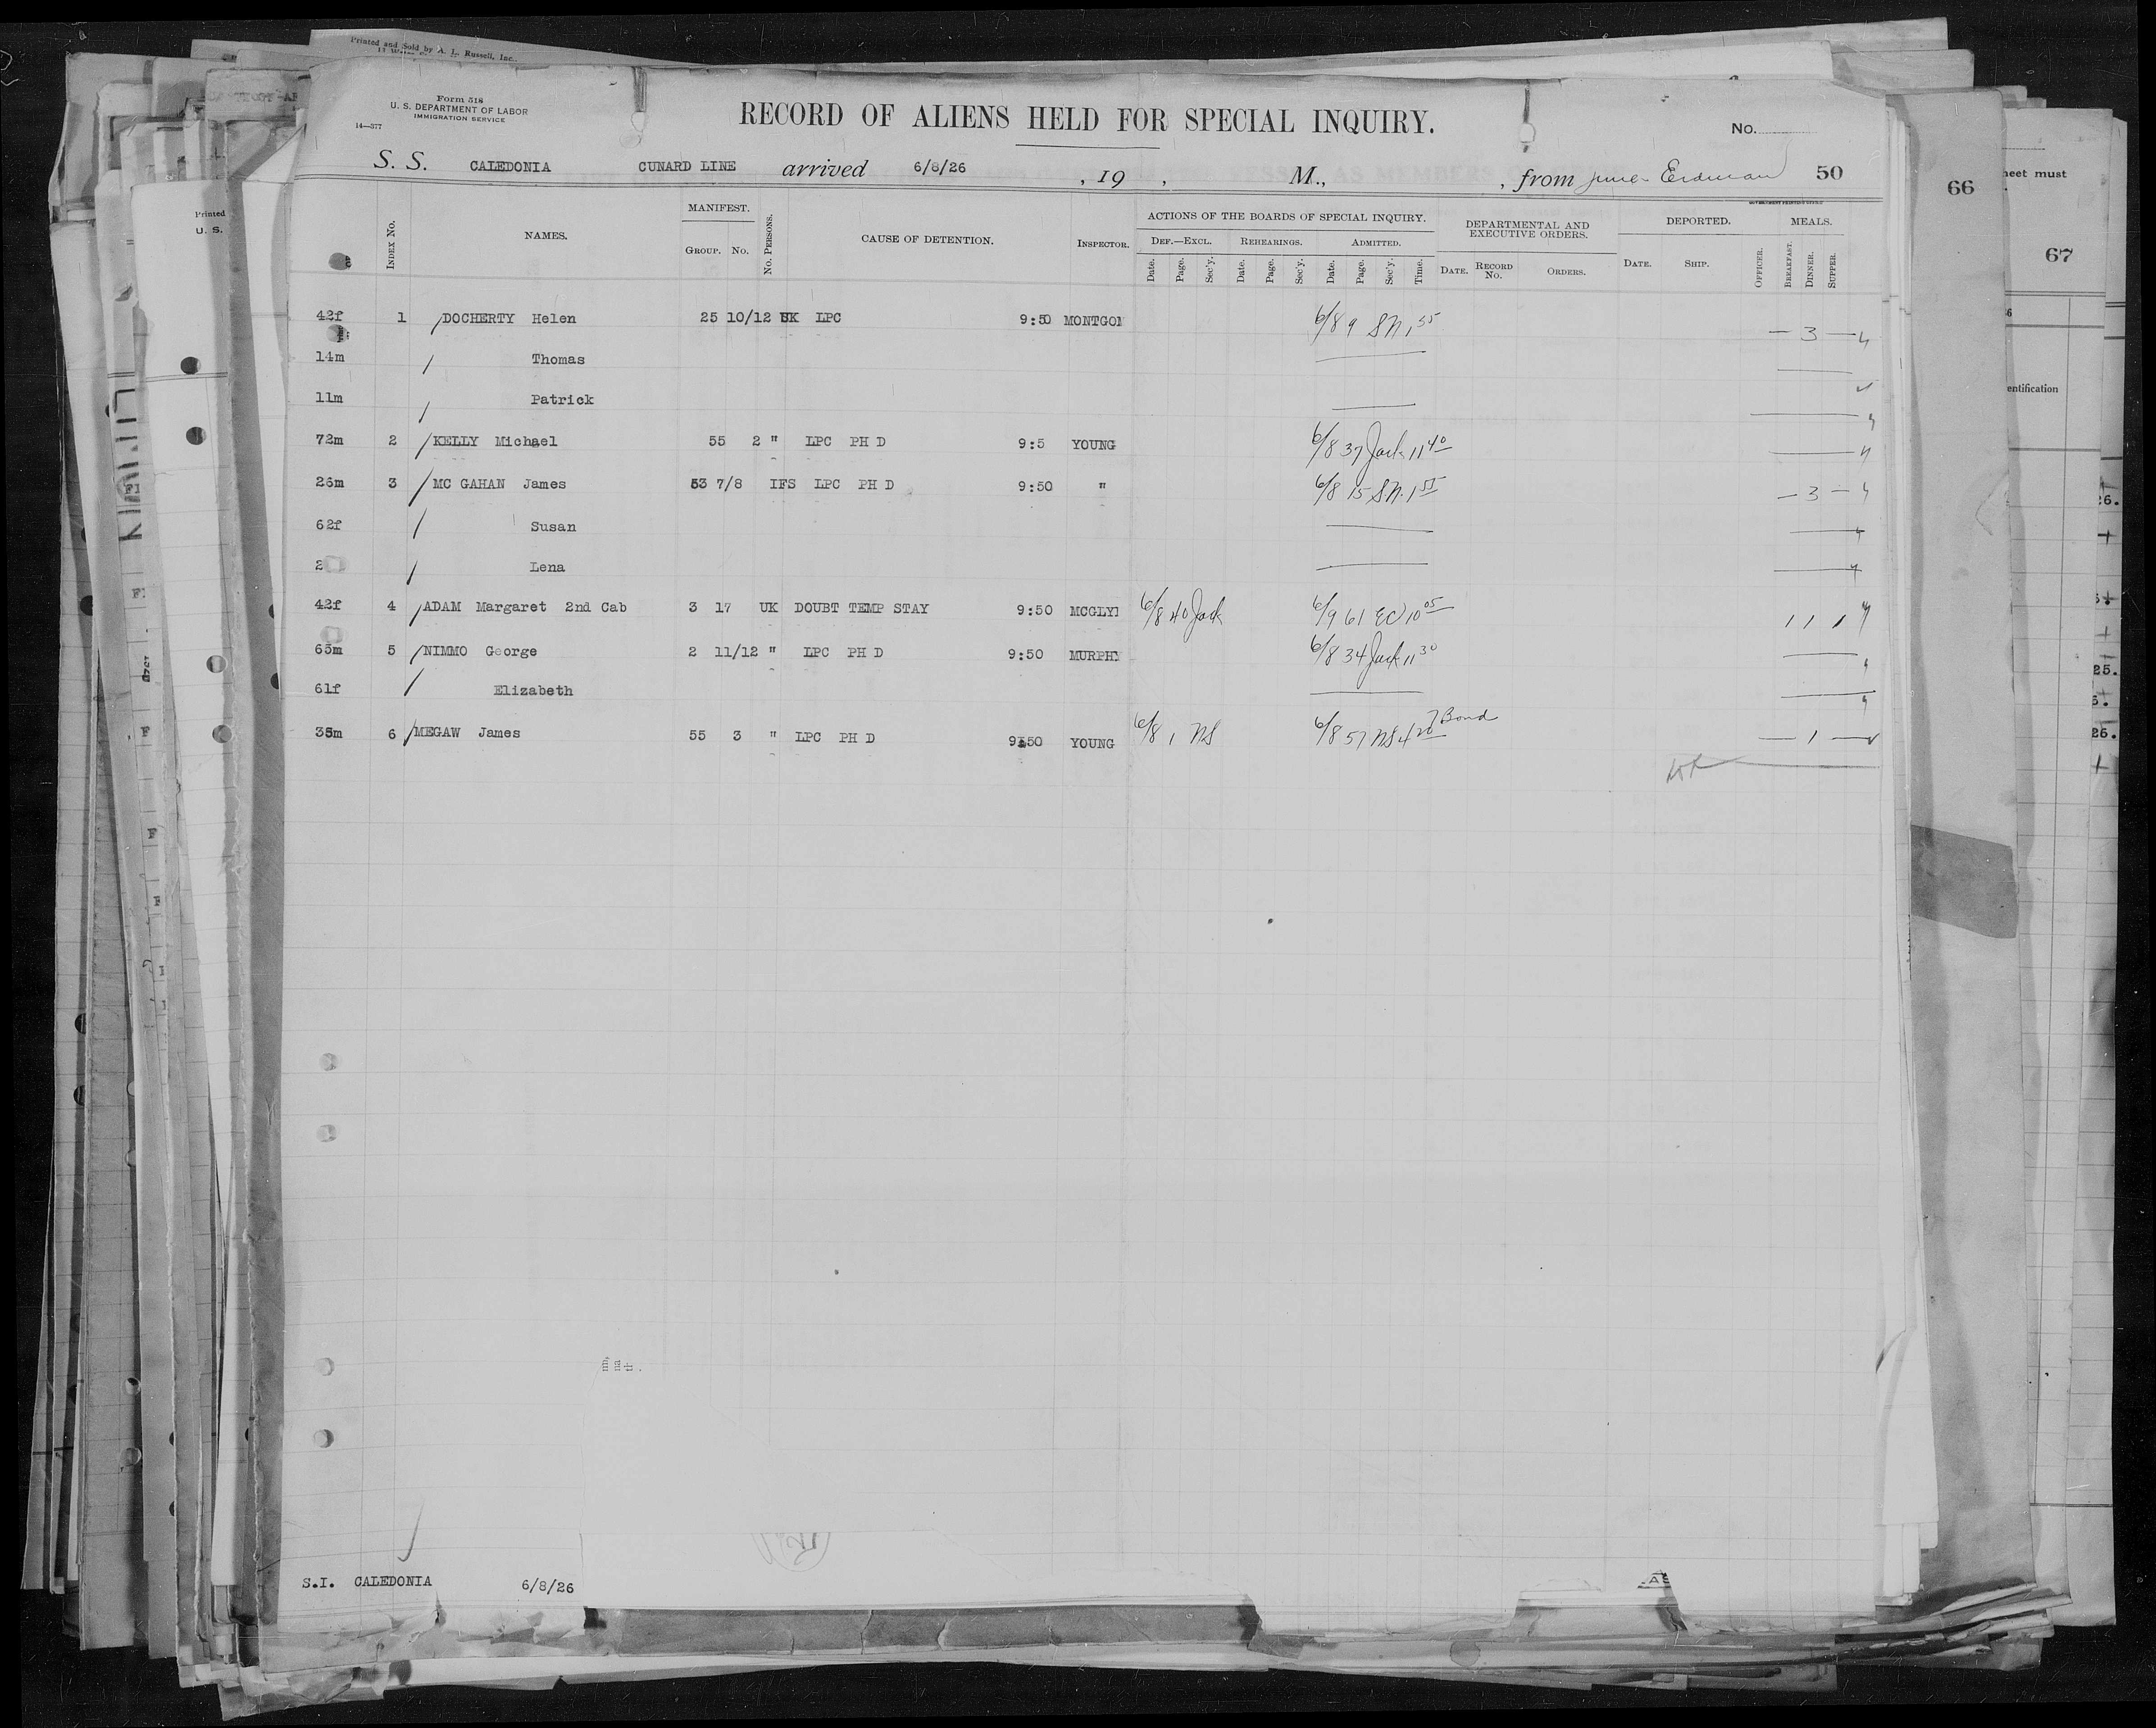 Printed and Sold by A. L. Russell, Inc.,
Form 518
U. S. DEPARTMENT OF LABOR
IMMIGRATION SERVICE
14—577
RECORD OF ALIENS HELD FOR SPECIAL INQUIRY.
No.
S. S. CALEDONIA CUNARD LINE arrived 6/8/26 , 19 , M., , from Erdman 50
66
neet must
67
entification
Printed
U. S.
Index No. NAMES. MANIFEST. Group. No. No. Persons. CAUSE OF DETENTION. Inspector. ACTIONS OF THE BOARDS OF SPECIAL INQUIRY. DEPARTMENTAL AND EXECUTIVE ORDERS. DEPORTED. MEALS.
Def.—Excl. Rehearings. Admitted.
Date. Page. Sec'y. Date. Page. Sec'y. Date. Page. Sec'y. Time. Date. Record No. Orders. Date. Ship. Officer. Breakfast. Dinner. Supper.
42f 1 DOCHERTY Helen 25 10/12 UK LPC 9:50 MONTGOM 6/8 9 SN 1 55 — 3 —
14m Thomas
11m Patrick
72m 2 KELLY Michael 55 2 " LPC PH D 9:5 YOUNG 6/8 37 Jack 11 40
26m 3 MC GAHAN James 53 7/8 IFS LPC PH D 9:50 " 6/8 15 SN. 1 55 — 3 —
62f Susan
2 Lena
42f 4 ADAM Margaret 2nd Cab 3 17 UK DOUBT TEMP STAY 9:50 MCGLY 6/8 40 Jack 6/9 61 EC 10 05 1 1 1
65m 5 NIMMO George 2 11/12 " LPC PH D 9:50 MURPHY 6/8 34 Jack 11 30
61f Elizabeth
35m 6 MEGAW James 55 3 " LPC PH D 9:50 YOUNG 6/8 1 NS 6/8 57 NS 4 20 Bond — 1 —
S.I. CALEDONIA 6/8/26